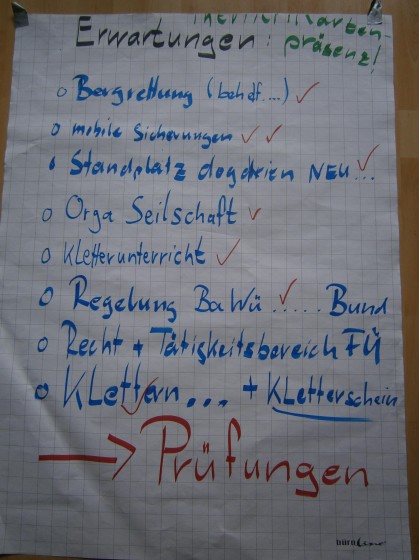 Erwartungen: präsenz!
o Bergrettung (behelf....) ✓
o mobile Sicherungen ✓ ✓
o Standplatz dogdrien NEU... ✓
o Orga Seilschaft ✓
o Kletterunterricht ✓
o Regelung BaWü ..... Bund ✓
o Recht + Tätigkeitsbereich FÜ
o Klettern... + Kletterschein
→ Prüfungen